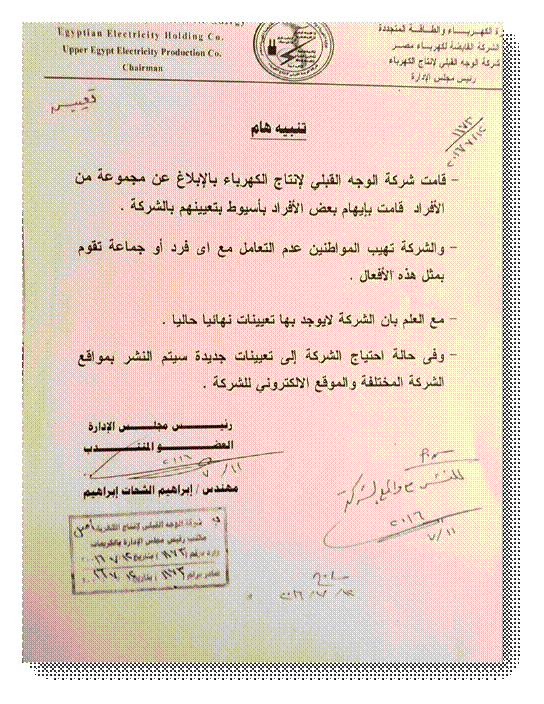 Egyptian Electricity Holding Co.
Upper Egypt Electricity Production Co.
Chairman
الكهرباء والطاقة المتجددة
الشركة القابضة لكهرباء مصر
شركة الوجه القبلي لإنتاج الكهرباء
رئيس مجلس الإدارة
تنبيه هام
١١٧٣
٢٠١٦/٧/١٢
- قامت شركة الوجه القبلي لإنتاج الكهرباء بالإبلاغ عن مجموعة من
الأفراد قامت بإيهام بعض الأفراد بأسيوط بتعيينهم بالشركة .
- والشركة تهيب المواطنين عدم التعامل مع اى فرد أو جماعة تقوم
بمثل هذه الأفعال .
- مع العلم بان الشركة لايوجد بها تعيينات نهائيا حاليا .
- وفى حالة احتياج الشركة إلى تعيينات جديدة سيتم النشر بمواقع
الشركة المختلفة والموقع الالكتروني للشركة .
رئيس مجلس الإدارة
العضو المنتدب
٢٠١٦
٧/١١
مهندس / إبراهيم الشحات إبراهيم
٢٠١٦
٧/١١
شركة الوجه القبلي لإنتاج الكهرباء
مكتب رئيس مجلس الإدارة بالكريمات